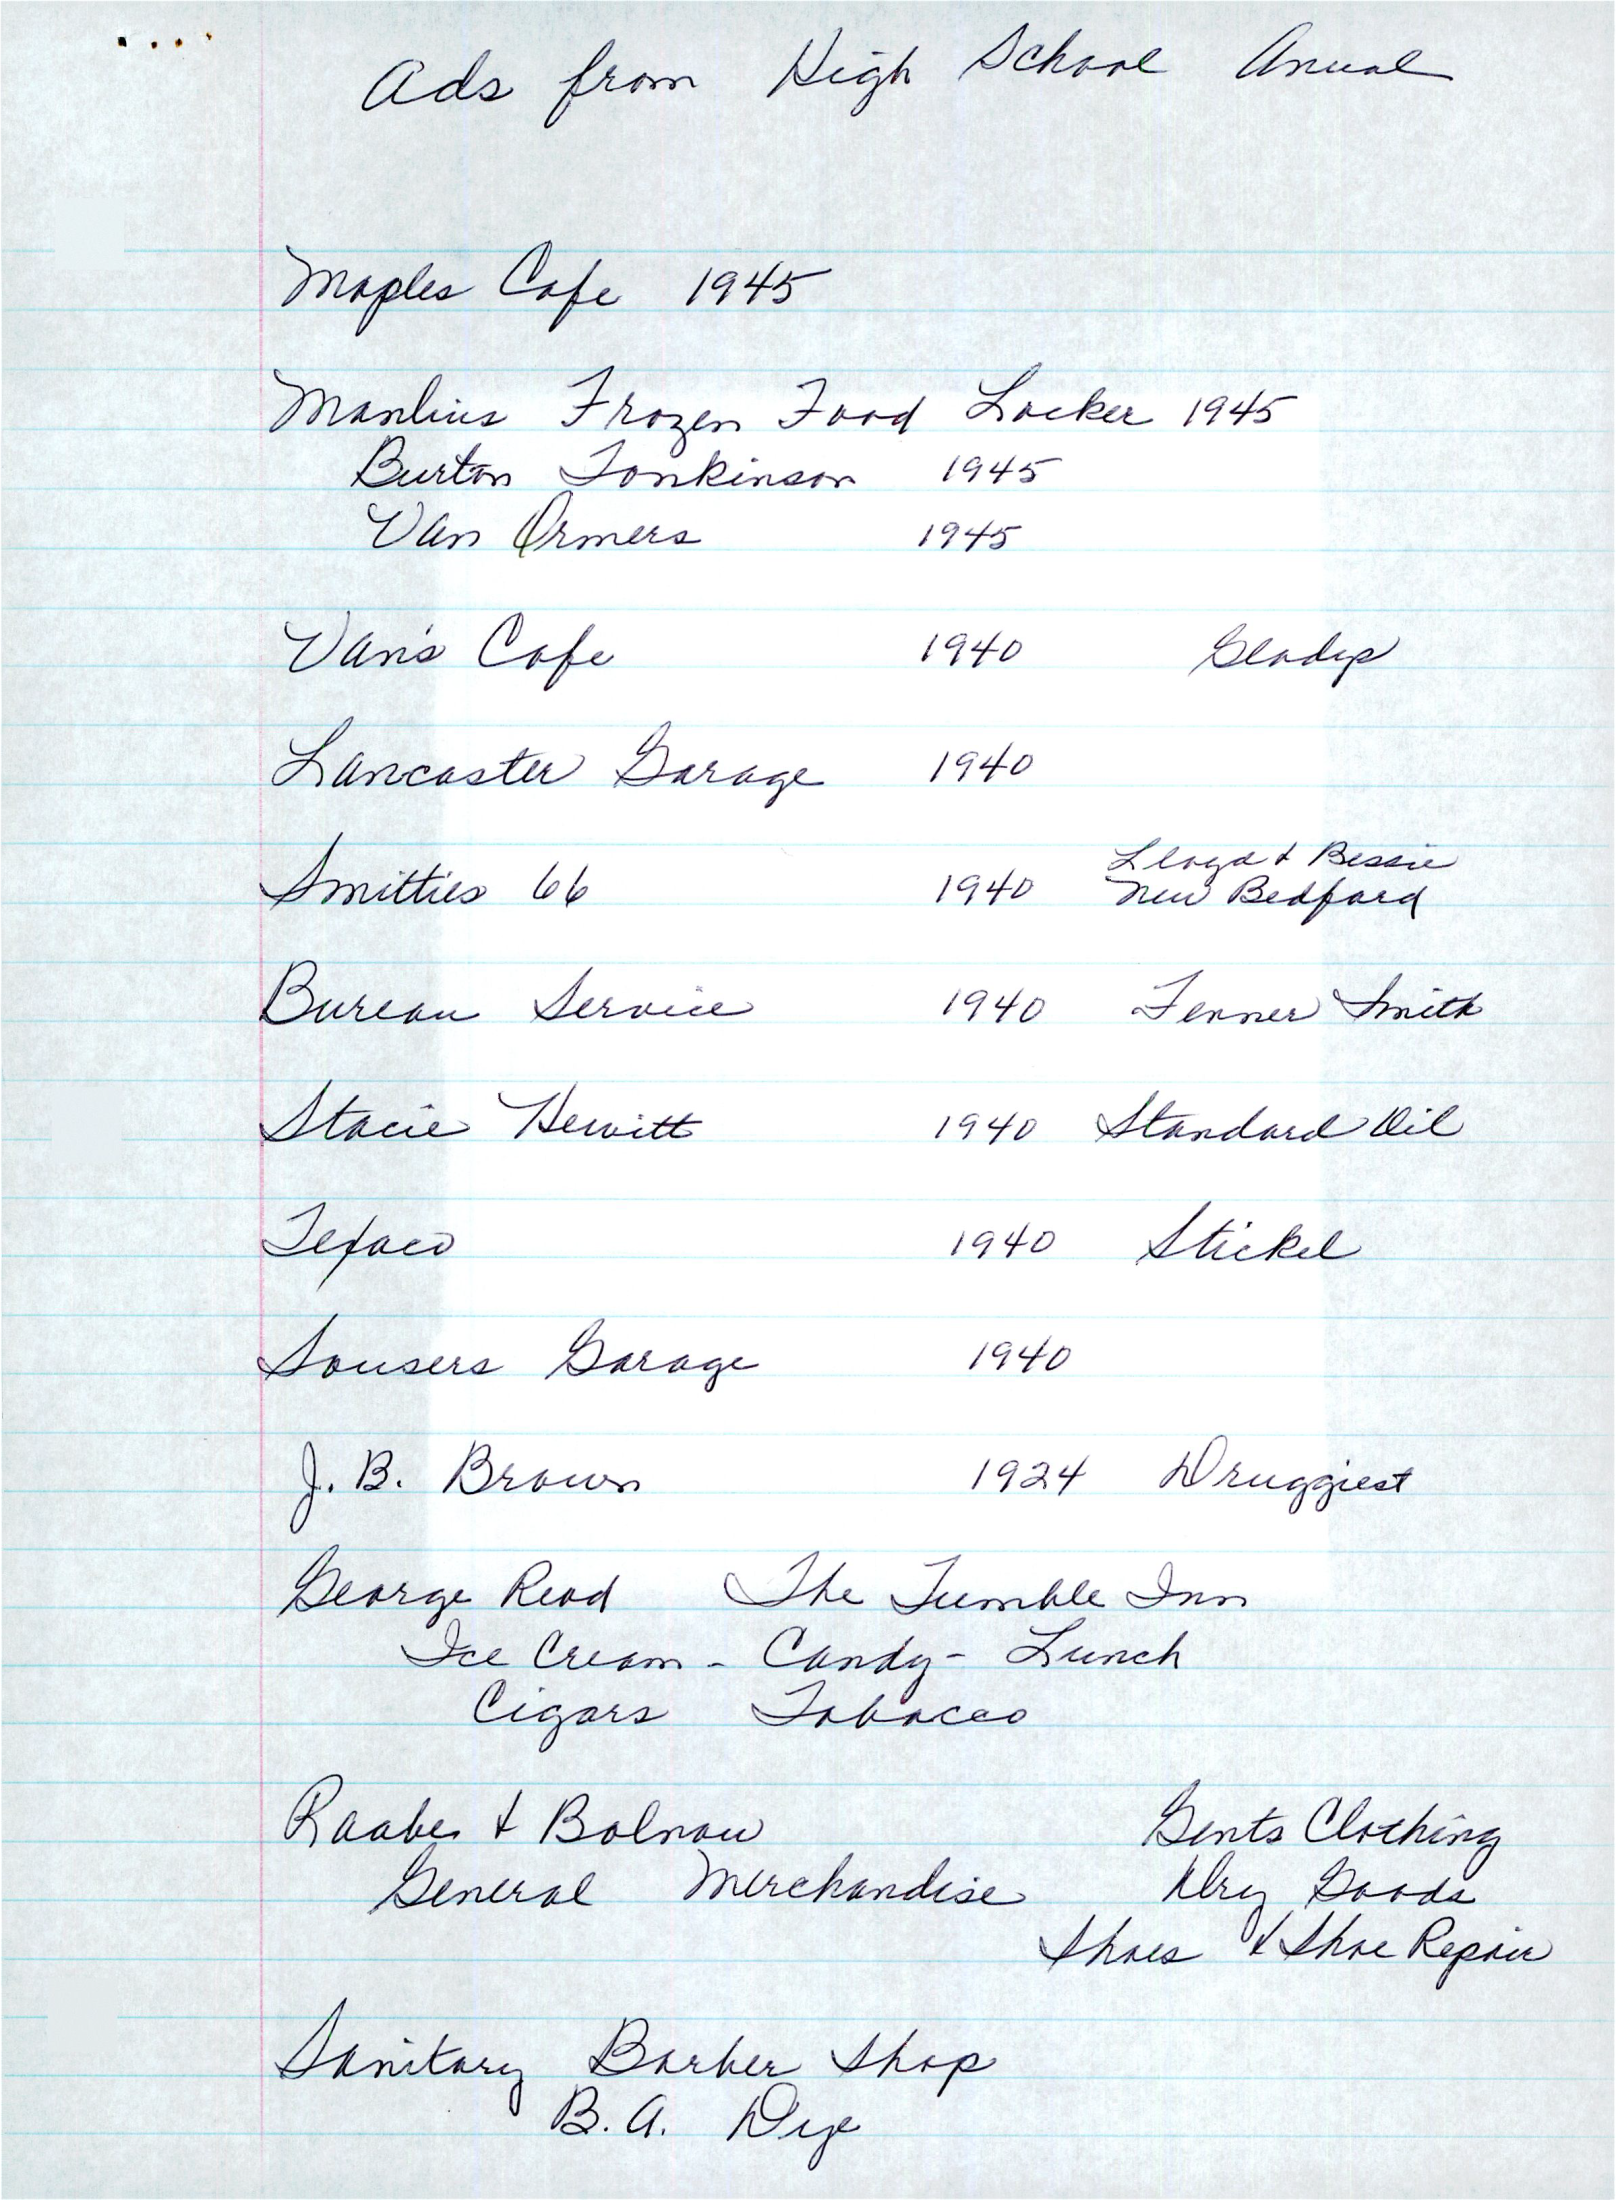 Ads from High School Anual
Maples Cafe 1945
Manlius Frozen Food Locker 1945
Burton Tonkinson 1945
Van Ormers 1945
Van's Cafe 1940 Gladys
Lancaster Garage 1940
Lloyd & Bessie
Smitties 66 1940 New Bedford
Bureau Service 1940 Fenner Smith
Stacie Hewitt 1940 Standard Oil
Texaco 1940 Stickel
Sousers Garage 1940
J. B. Brown 1924 Druggiest
George Read The Tumble Inn
Ice Cream - Candy - Lunch
Cigars Tobacco
Raabe & Bolnow Gents Clothing
General Merchandise Dry Goods
Shoes & Shoe Repair
Sanitary Barber Shop
B. A. Dye